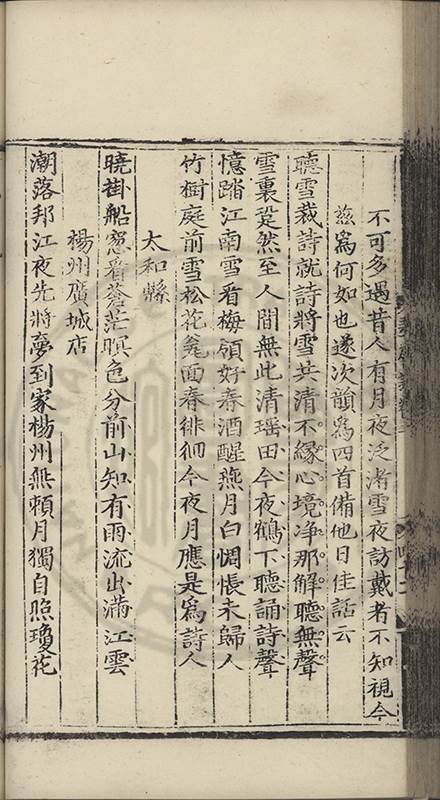 不可多遇昔人有月夜泛渚雪夜訪戴者不知視今
茲爲何如也遂次韻爲四首備他日佳話云
聽雪裁詩就詩將雪共清不緣心境净那解聽無聲
雪裏跫然至人間無此清瑶田今夜鶴下聽誦詩聲
憶踏江南雪看梅領好春酒醒燕月白惆悵未歸人
竹樹庭前雪松花瓮面春徘徊今夜月應是爲詩人
太和縣
曉掛船窓看蒼茫暝色分前山知有雨流出滿江雲
楊州廣城店
潮落邦江夜先將夢到家楊州無賴月獨自照瓊花